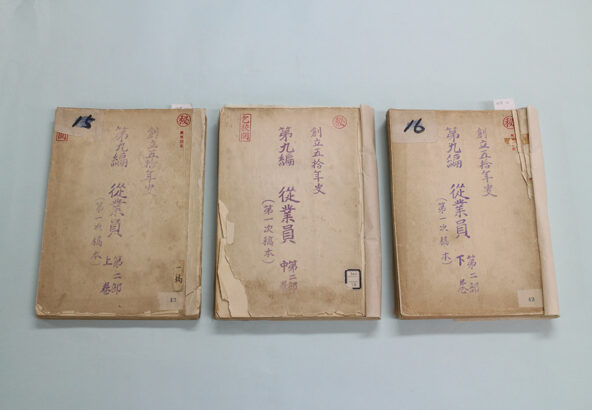 15
㊙
創立五拾年史
第九編 從業員
(第一次稿本)
第二部
上巻
㊙
創立五拾年史
第九編 從業員
(第一次稿本)
第二部
中巻
16
㊙
創立五拾年史
第九編 從業員
(第一次稿本)
第二部
下巻